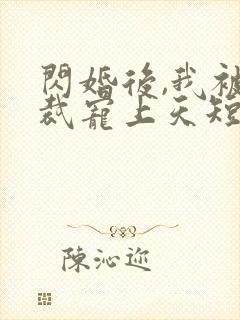 閃婚後,我被
裁寵上天短
陳沁迩